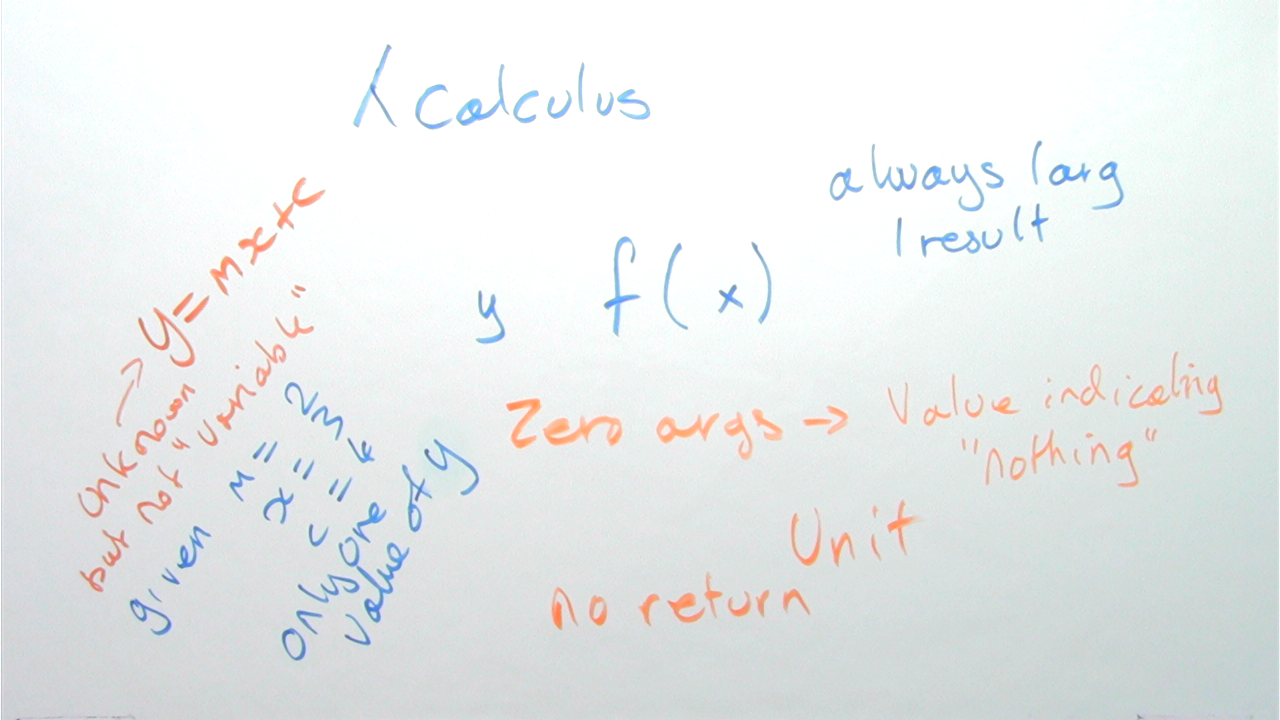 λ calculus
always 1 arg
1 result
y f(x)
y = mx + c
→
unknown
but not "variable"
given m = 2
x = 3
c = 4
only one
value of y
Zero args → Value indicating
"nothing"
Unit
no return